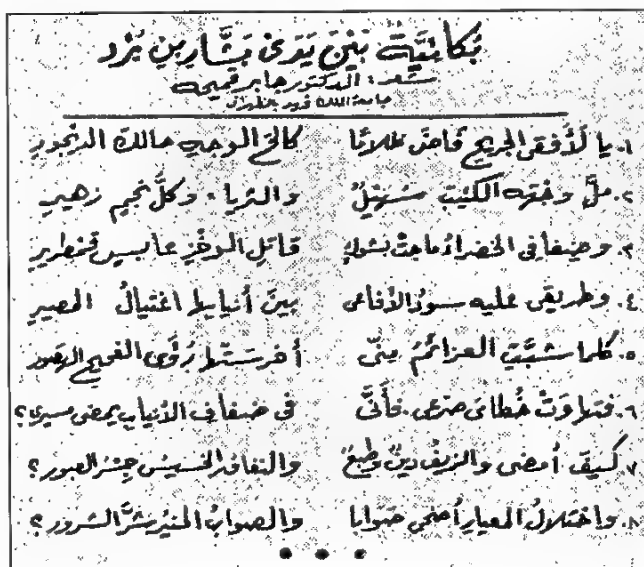 بُكائيَّة بَيْنَ يَدَىْ بَشَّار بن بُرْد
شعر: الدكتور جابر قميحه
جامعة الملك فهد بالظهران
١. يا لَأُفقى الجريح فاضَ ظلامًا كالحَ الوجهِ حالكَ الديجورِ
٢. ملَّ وجْهَه الكئيبَ سُهَيْلٌ والثريا، وكلُّ نجمٍ زهيرِ
٣. وضِفافى الخضراءُ ماجتْ بشوكٍ قاتلِ الوخْزِ عابسٍ قمطريرِ
٤. وطريقى عليه سودُ الأفاعى بينَ أنيابها اغتيالُ المصيرِ
٥. كلما شبَّتِ العزائمُ منِّى أخرسَتْها رُؤَى الفحيحِ الهصورِ
٦. فتهاوَتْ خُطاىَ صرعى، فأنَّى فى ضفافِ الأنيابِ يمضى مسيرى؟
٧. كيفَ أمضى والزيفُ دينٌ وطبعٌ والنفاقُ الخسيسُ جسْرُ العبورِ؟
٨. واختلالُ المعيارِ أضحى صوابا والصوابُ المنيرُ شرَّ الشرورِ؟